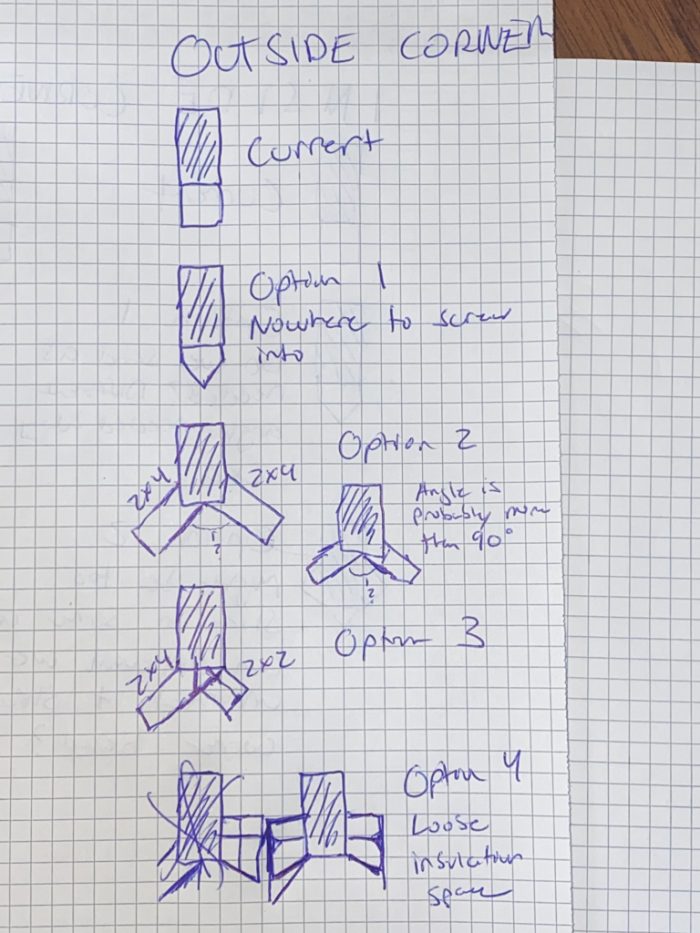 OUTSIDE CORNER
Current
Option 1
Nowhere to screw
into
Option 2
2x4
2x4
Angle is
probably more
than 90°
?
?
Option 3
2x4
2x2
Option 4
Loose
insulation
space